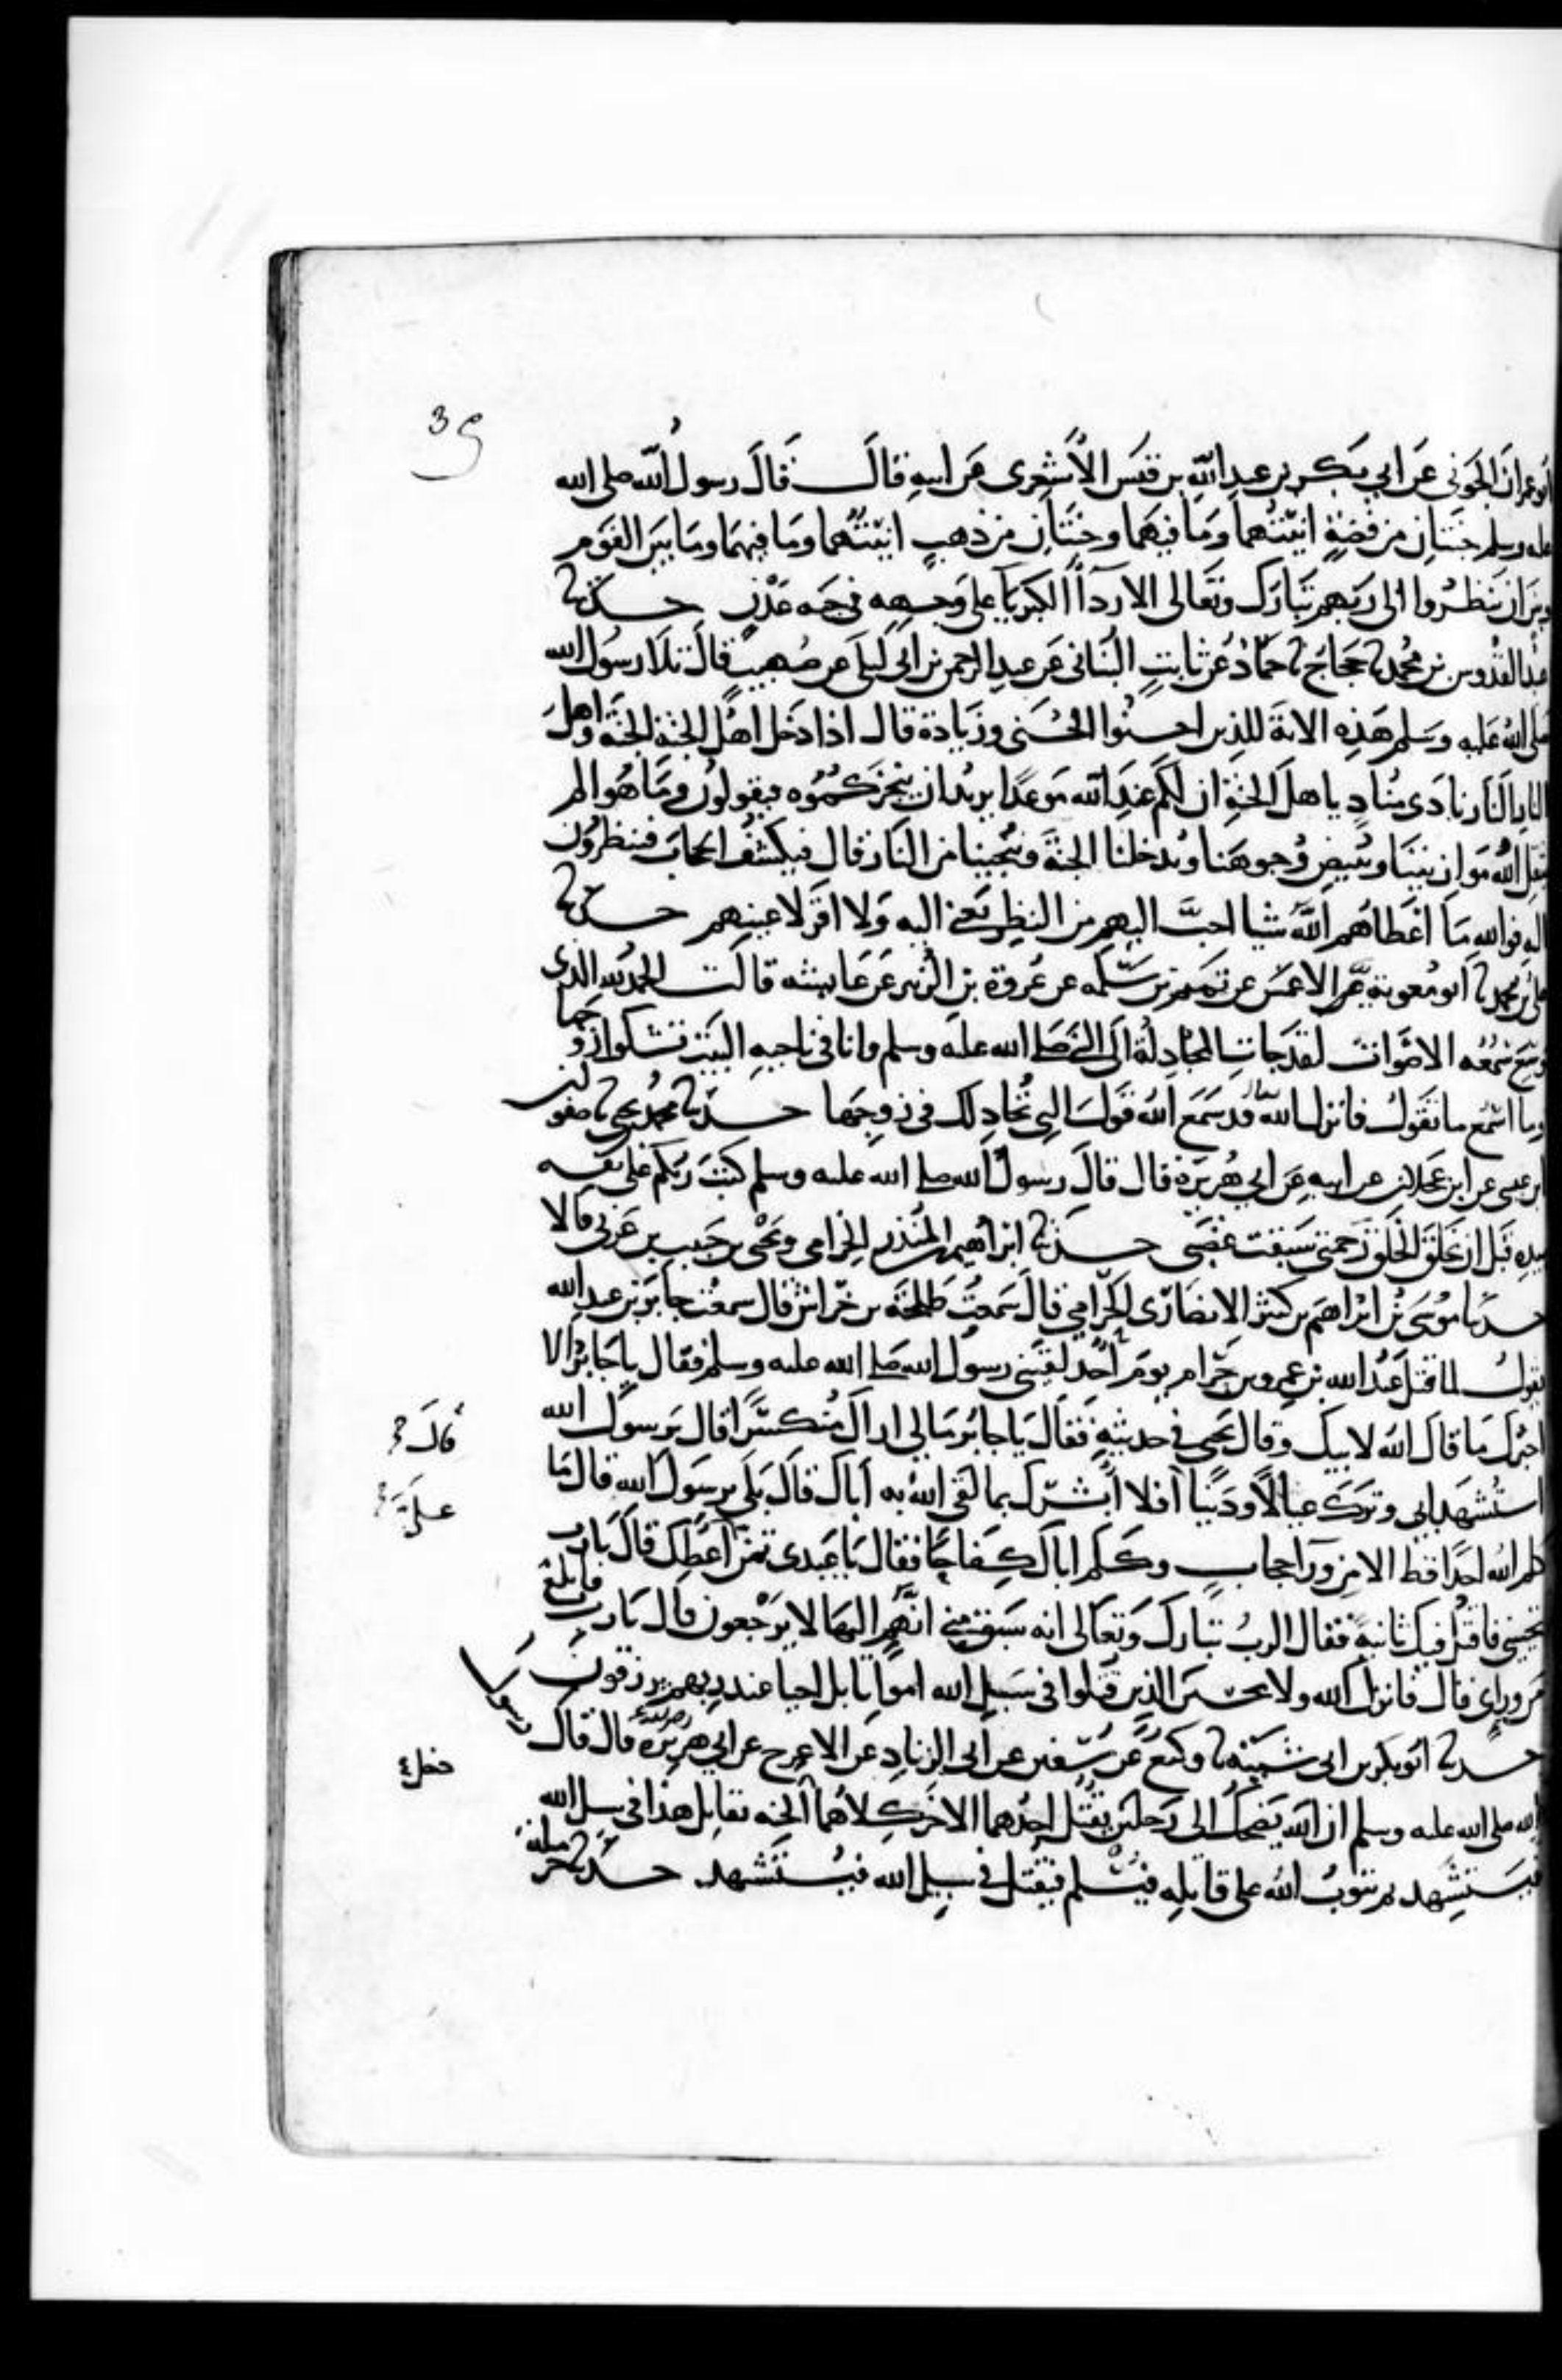 39
ابو عمران الجوني عن ابي بكر بن عبد الله بن قيس الأشعري عن ابيه قال قال رسول الله صلى الله
عليه وسلم جنتان من فضة انيتهما وما فيهما وجنتان من ذهب انيتهما وما فيهما وما بين القوم
وبين ان ينظروا الى ربهم تبارك وتعالى الا رداأ الكبرياء على وجهه في جنه عدن حدثنا
عبد القدوس بن محمد نا حجاج نا حماد عن ثابت البناني عن عبد الرحمن بن ابي ليلى عن صهيب قال تلا رسول الله
صلى الله عليه وسلم هذه الاية للذين احسنوا الحسنى وزيادة قال اذا دخل اهل الجنة الجنة واهل
النار النار نادى مناد يا هل الجنة ان لكم عند الله موعدا يريد ان ينجزكموه فيقولون وما هو الم
يثقل الله موازيننا ويبيض وجوهنا ويدخلنا الجنة وينجينا من النار قال فيكشف الحجاب فينظرون
اليه فوالله ما اعطاهم الله شيا احب اليهم من النظر يعني اليه ولا اقر لاعينهم حدثنا
علي بن محمد نا ابو معوية عن الاعمش عن تميم بن سلمه عن عروة بن الزبير عن عايشه قالت الحمد لله الذي
وسع سمعه الاصوات لقد جات المجادلة الى النبي صلى الله عليه وسلم وانا في ناحيه البيت تشكوا زوجها
وما اسمع ما تقول فانزل الله قد سمع الله قول التي تجادلك في زوجها حدثنا محمد بن يحيى نا صفوان
ابن عيسى عن ابن عجلان عن ابيه عن ابي هريرة قال قال رسول الله صلى الله عليه وسلم كتب ربكم على نفسه
بيده قبل ان يخلق الخلق رحمتي سبقت غضبي حدثنا ابراهيم بن المنذر الحزامي ويحيى بن حبيب بن عربي قالا
حدثنا موسى بن ابراهيم بن كثير الانصاري الحرامي قال سمعت طلحة بن خراش قال سمعت جابر بن عبد الله
يقول لما قتل عبد الله بن عمرو بن حرام يوم احد لقيني رسول الله صلى الله عليه وسلم فقال يا جابر الا
اخبرك ما قال الله لابيك وقال يحيى في حديثه فقال يا جابر مالي اراك منكسرا قال يرسول الله
قال
استشهد ابي وترك عيالا ودينا أفلا أبشرك بما لقي الله به أباك قال بلى يرسول الله قال ما
كلم الله احدا قط الا من ورآ حجاب وكلم اباك كفاحا فقال يا عبدي تمن أعطك قال يا رب
تحييني فاقتل فيك ثانية فقال الرب تبارك وتعالى انه سبق مني انهم اليها لا يرجعون قال يا رب فابلغ
من ورايي قال فانزل الله ولا تحسبن الذين قتلوا في سبيل الله امواتا بل احيا عند ربهم يرزقون
حدثنا ابو بكر بن ابي شيبه نا وكيع عن سفين عن ابي الزناد عن الاعرج عن ابي هريرة قال قال رسول
الله صلى الله عليه وسلم ان الله يضحك الى رجلين يقتل احدهما الاخر كلاهما الجنه يقاتل هذا في سبيل الله
دخل
فيستشهد ثم يتوب الله على قاتله فيسلم فيقتل في سبيل الله فيستشهد حدثنا حرملة